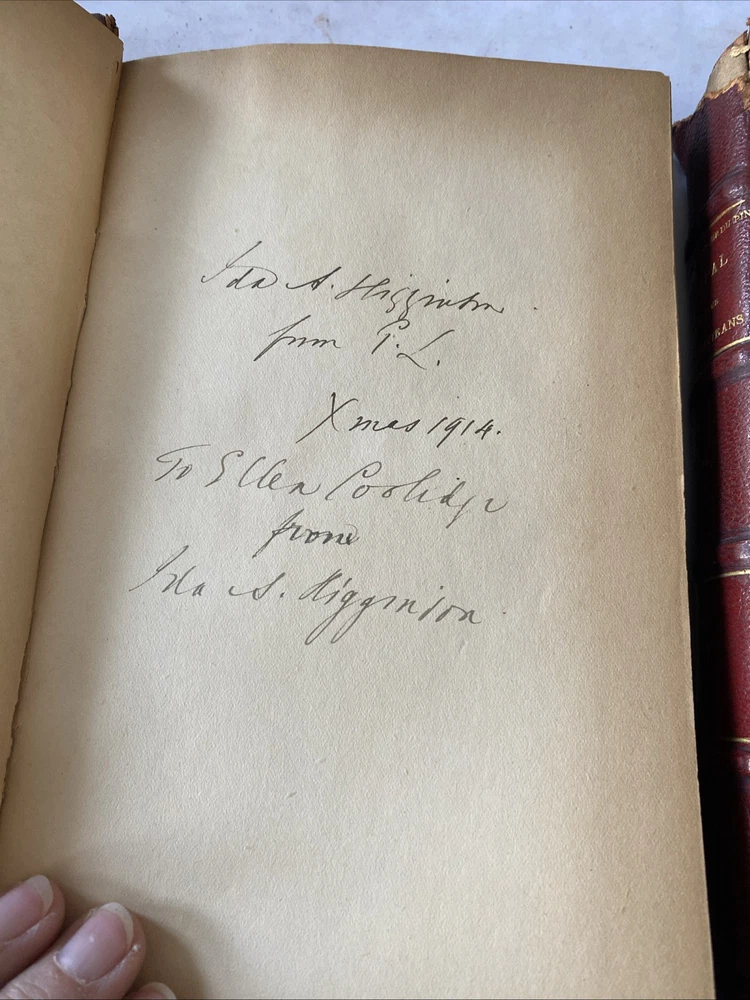 Ida A. Higginson.
from P. L.
Xmas 1914.
To Ellen Coolidge
from
Ida A. Higginson.
AL